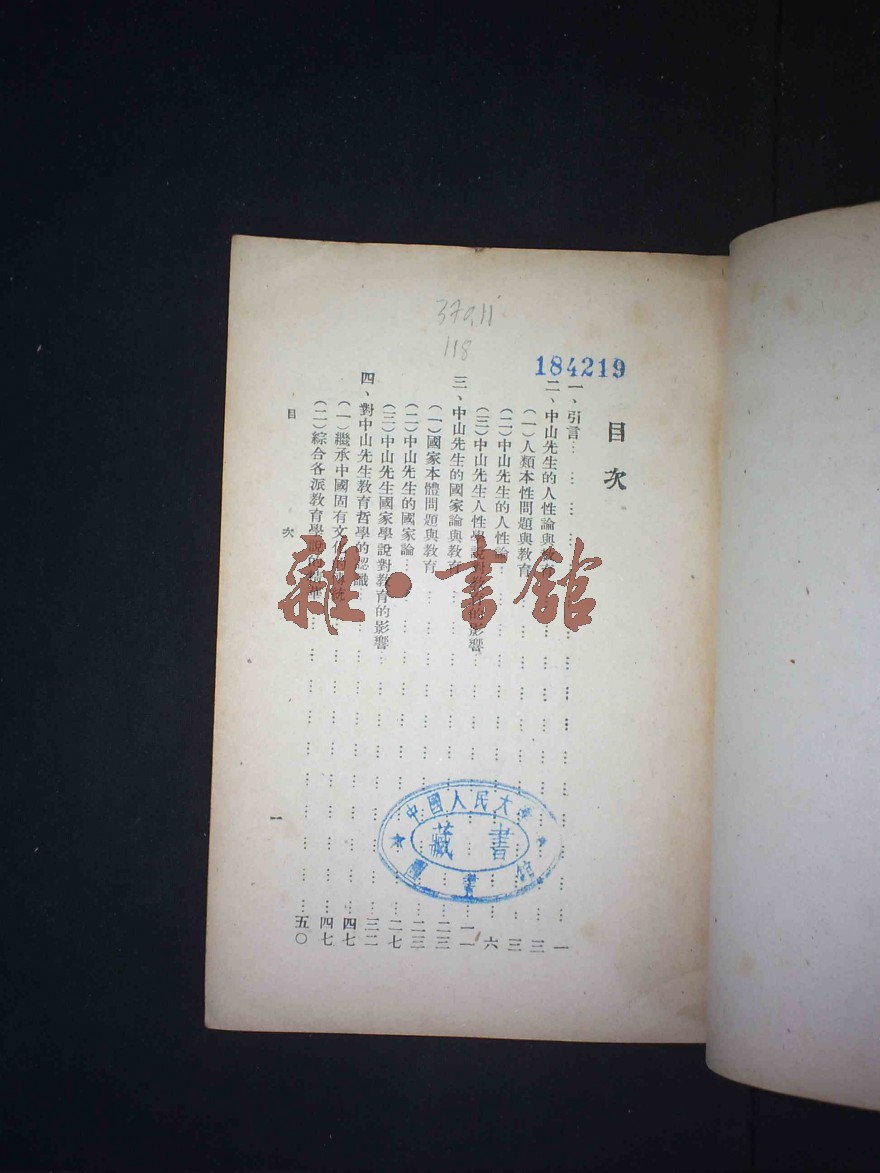 370.11
118
184219
目次
一、引言…………一
二、中山先生的人性論與教育…………三
（一）人類本性問題與教育…………三
（二）中山先生的人性論…………六
（三）中山先生人性學說對教育的影響…………一一
三、中山先生的國家論與教育…………二三
（一）國家本體問題與教育…………二三
（二）中山先生的國家論…………二七
（三）中山先生國家學說對教育的影響…………三二
四、對中山先生教育哲學的認識…………四七
（一）繼承中國固有文化的傳統…………四七
（二）綜合各派教育學說的精華…………五〇
目次
一
中國人民大學
藏書
圖書館
雜·書館